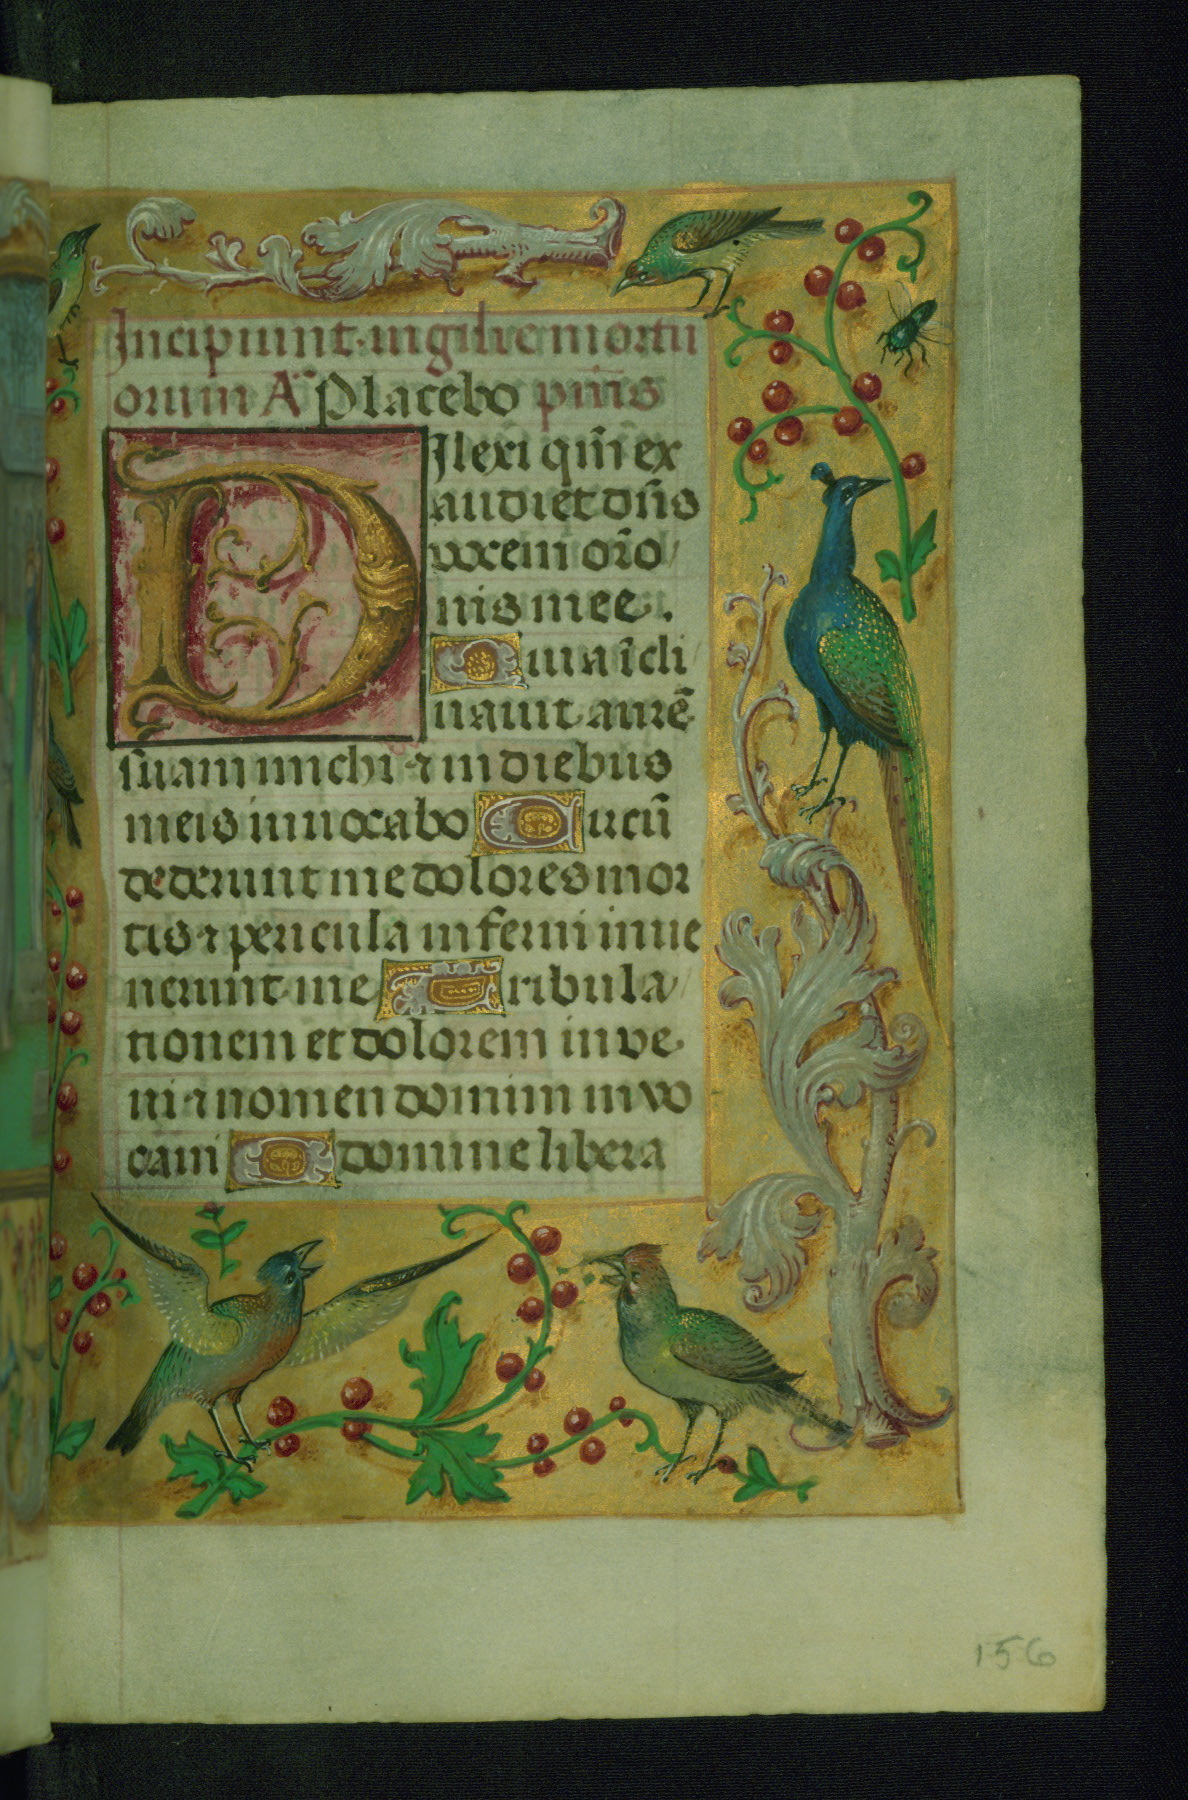 Incipiunt vigilie mortu
orum Aͣ Placebo p̄m̄s
Dilexi qm̄ ex
audiet dn̄s
vocem or̄o
nis mee.
Quia īcli
nauit aurē
suam michi ⁊ in diebus
meis inuocabo Circū
dederunt me dolores mor
tis ⁊ pericula inferni inue
nerunt me Tribula
tionem et dolorem inve
ni ⁊ nomen domini invo
caui O domine libera
156